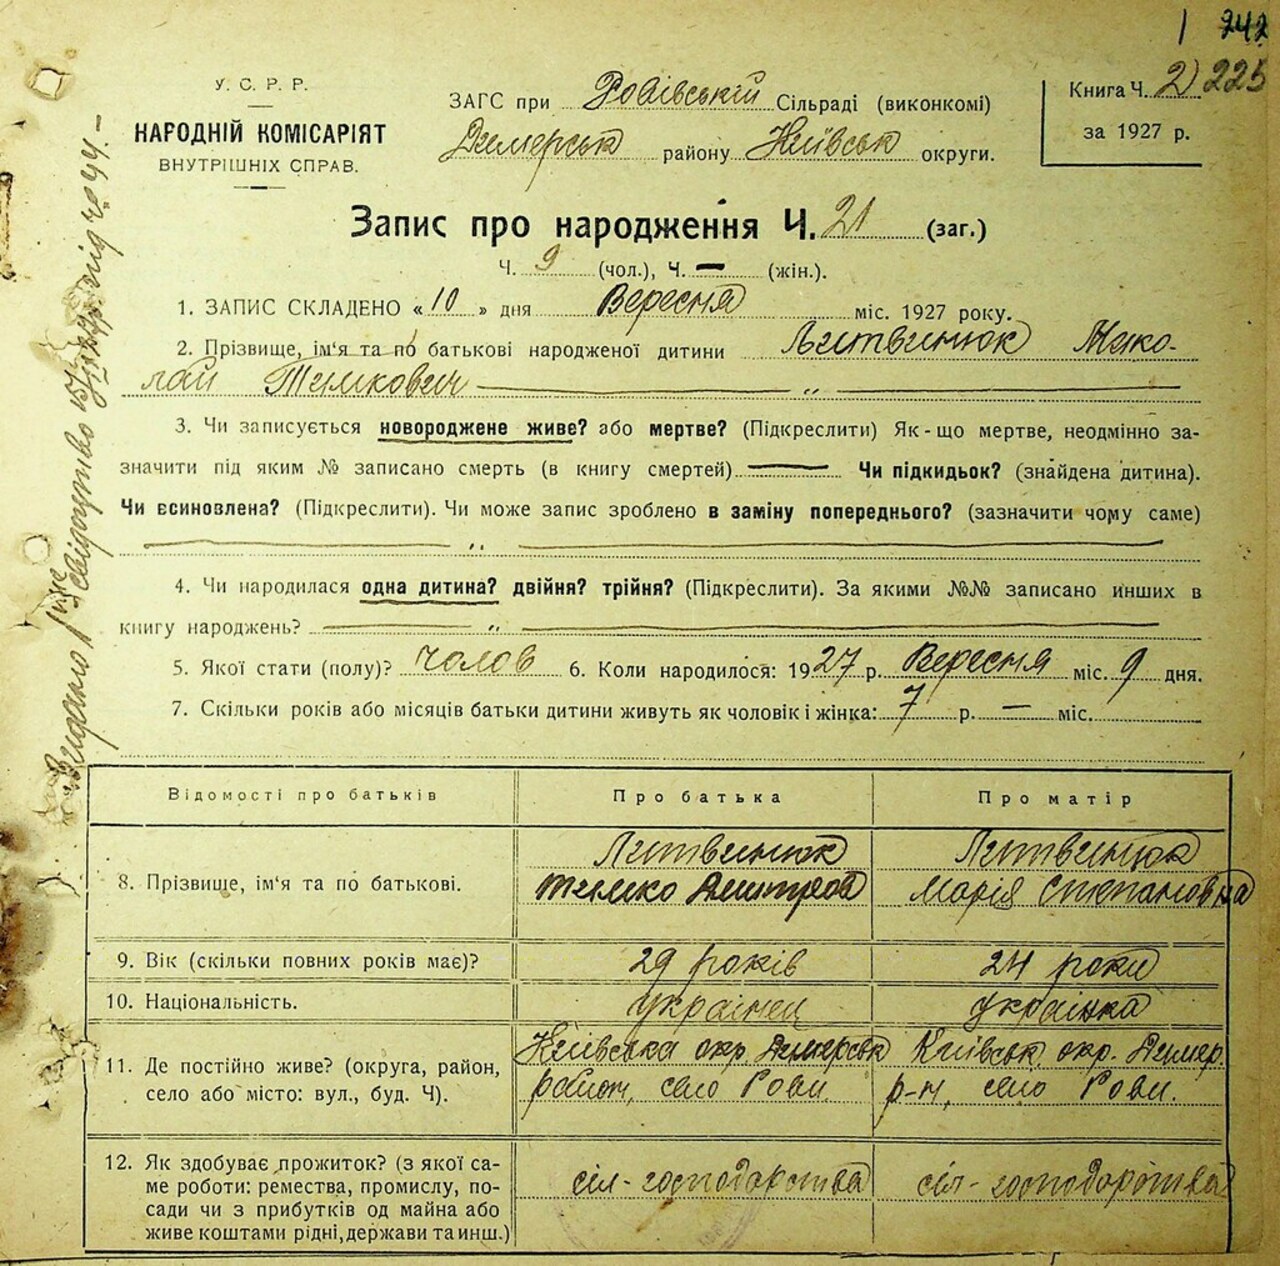 1 242
У. С. Р. Р.
НАРОДНІЙ КОМІСАРІЯТ
ВНУТРІШНІХ СПРАВ.
ЗАГС при Ровівській Сільраді (виконкомі)
Димерськ району Київськ округи.
Книга Ч. 2) 225
за 1927 р.
Запис про народження Ч. 21 (заг.)
Ч. 9 (чол.), Ч. — (жін.).
1. ЗАПИС СКЛАДЕНО «10» дня Вересня міс. 1927 року.
2. Прізвище, ім'я та по батькові народженої дитини Литвинюк Мико-
лай Тимкович — „ —
3. Чи записується новороджене живе? або мертве? (Підкреслити) Як-що мертве, неодмінно за-
значити під яким № записано смерть (в книгу смертей) — Чи підкидьок? (знайдена дитина).
Чи єсиновлена? (Підкреслити). Чи може запис зроблено в заміну попереднього? (зазначити чому саме)
— „ —
4. Чи народилася одна дитина? двійня? трійня? (Підкреслити). За якими №№ записано инших в
книгу народжень? — „ —
5. Якої стати (полу)? чолов 6. Коли народилося: 1927 р. Вересня міс. 9 дня.
7. Скільки років або місяців батьки дитини живуть як чоловік і жінка: 7 р. — міс.
Відомості про батьків Про батька Про матір
8. Прізвище, ім'я та по батькові.
Литвинюк
Тимко Дмитров
Литвинюк
Марія Степановна
9. Вік (скільки повних років має)? 29 років 24 роки
10. Національність. українец українка
11. Де постійно живе? (округа, район,
село або місто: вул., буд. Ч).
Київська окр. Димерськ
район, село Рови.
Київськ. окр. Димер.
р-н, село Рови.
12. Як здобуває прожиток? (з якої са-
ме роботи: ремества, промислу, по-
сади чи з прибутків од майна або
живе коштами рідні, держави та инш.)
сіл-господарства
сіл-господарства
Видано свідоцтво